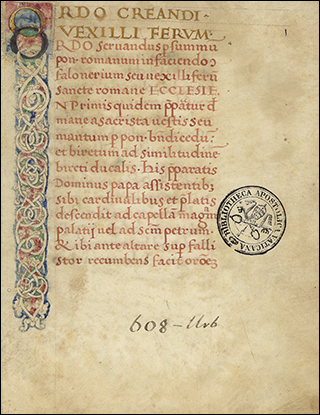 ORDO CREANDI·
VEXILLI FERVM·
1
RDO servandus p summu
pon· romanum in faciendo
falonerium seu vexilliferu
sancte romane ECCLESIE
N Primis quidem ppatur d
vestis seu
mantum p pon· bndicedu:
et biretum ad similitudine
ducalis· His pparatis
Dominus papa assistentib;
sibi cardinalibus et platis
descendit ad capella magna
palatii uel ad scm petrum:
ibi ante altare sup falli
stor recumbens facit
BIBLIOTHECA APOSTOLICA VATICANA
608 - Urb